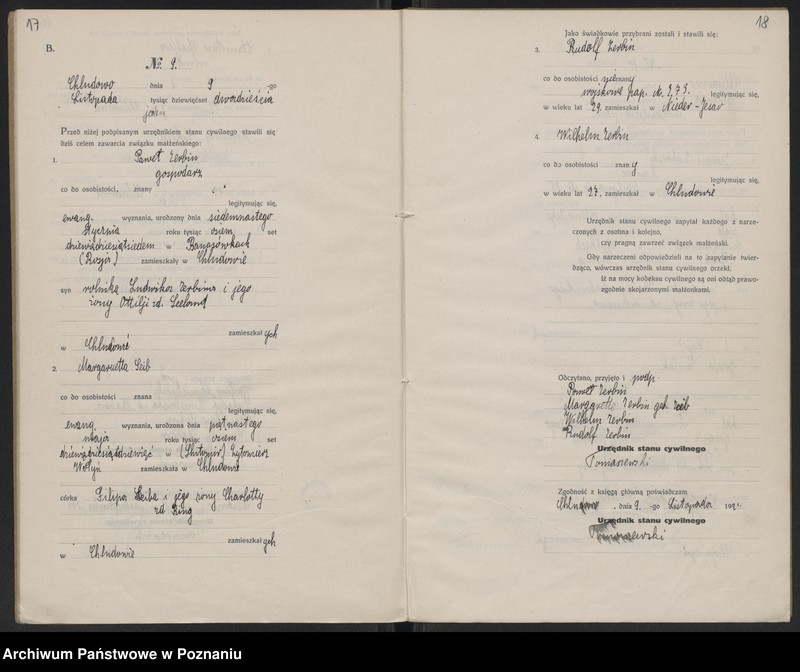 17
B.
№ 9.
Chludowo dnia 9 -go
Listopada tysiąc dziewięćset dwudziestia
jeden
Przed niżej podpisanym urzędnikiem stanu cywilnego stawili się
dziś celem zawarcia związku małżeńskiego:
1. Paweł Zerbin
gospodarz
co do osobistości, znany
legitymując się,
ewang. wyznania, urodzony dnia siedemnastego
Stycznia roku tysiąc osiem set
w
zamieszkały w Chludowie
syn rolnika Ludwika Zerbina i jego
żony Ottilji zd.
zamieszkał ych
w Chludowie
2. Margaretta Seib
co do osobistości znana
legitymując się,
ewang. wyznania, urodzona dnia piętnastego
maja roku tysiąc osiem set
w (Shitomir) Zytomierz
Wołyń zamieszkała w Chludowie
córka Filipa Seiba i jego żony Charlotty
zd Ring
zamieszkał ych
w Chludowie
18
Jako świadkowie przybrani zostali i stawili się:
3. Rudolf Zerbin
co do osobistości nieznany
wojskowe pap. legitymując się,
w wieku lat 29. zamieszkał w Nieder-
4. Wilhelm Zerbin
co do osobistości znan y
legitymując się,
w wieku lat 27. zamieszkał w Chludowie
Urzędnik stanu cywilnego zapytał każdego z narze-
czonych z osobna i kolejno,
czy pragną zawrzeć związek małżeński.
Gdy narzeczeni odpowiedzieli na to zapytanie twier-
dząco, wówczas urzędnik stanu cywilnego orzekł,
iż na mocy kodeksu cywilnego są oni odtąd prawo-
zgodnie skojarzonymi małżonkami.
Odczytano, przyjęto i podp.
Paweł Zerbin
Margarette Zerbin geb. Seib
Wilhelm Zerbin
Rudolf Zerbin
Urzędnik stanu cywilnego
Tomaszewski
Zgodność z księgą główną poświadczam
Chludowo, dnia 9. -go Listopada 1921
Urzędnik stanu cywilnego
Tomaszewski
Archiwum Państwowe w Poznaniu